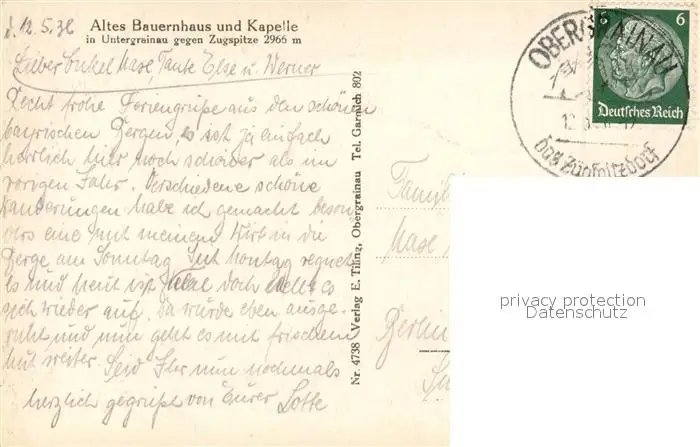 d. 12.5.36
Altes Bauernhaus und Kapelle
in Untergrainau gegen Zugspitze 2966 m
Lieber Onkel Maxe, Tante Else u. Werner
Recht frohe Feriengrüße aus den schönen
bayrischen Bergen, es ist ja einfach
herrlich hier noch schöner als im
vorigen Jahr. Verschiedene schöne
Wanderungen habe ich gemacht beson
ders eine mit meinem Wirt in die
Berge am Sonntag. Seit Montag regnet
es und heut ist doch es
sich wieder auf. Da wurde eben ausge-
ruht und nun geht es mit frischem
Mut weiter. Seid Ihr nun nochmals
herzlich gegrüßt von Eurer Lotte
Nr. 4738 Verlag E. Tiling, Obergrainau Tel. Garmisch 802
OBERGRAINAU
das Zugspitzdorf
6 6
Deutsches Reich
Famili
Maxe
Berlin
privacy protection
Datenschutz